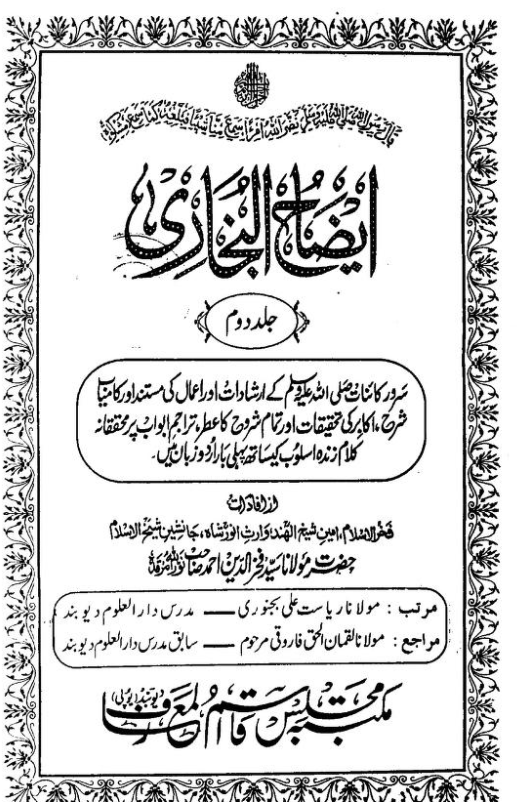 قال رسول الله صلى الله عليه وسلم نضر الله امرأ سمع منا شيئا فبلغه كما سمع
ایضاح البخاری
جلد دوم
سرور کائنات صلی اللہ علیہ وسلم کے ارشادات اور اعمال کی مستند اور کامیاب
شرح، اکابر کی تحقیقات اور تمام شروح کا عطر، تراجم ابواب پر محققانہ
کلام زندہ اسلوب کیساتھ پہلی بار اردو زبان میں۔
از افادات
فخر الاسلام، امین شیخ الہند، وارث انور شاہ، جانشین شیخ الاسلام
حضرت مولانا سید فخر الدین احمد صاحب نور اللہ مرقدہ
مرتب : مولانا ریاست علی بجنوری — مدرس دار العلوم دیوبند
مراجع : مولانا لقمان الحق فاروقی مرحوم — سابق مدرس دار العلوم دیوبند
مکتبہ مجلس قاسم المعارف دیوبند (یوپی)